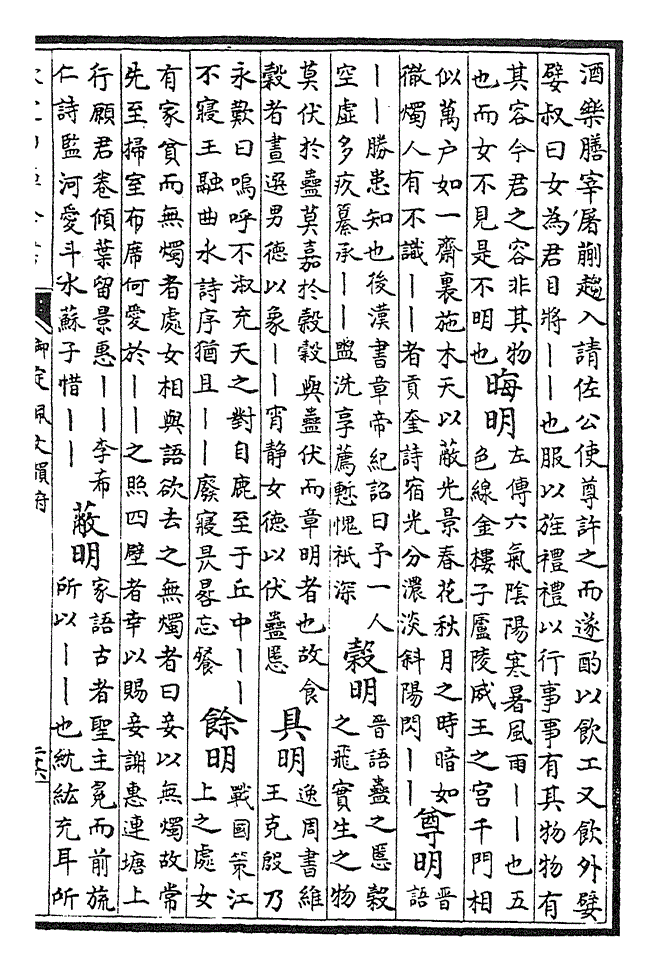 酒樂膳宰屠蒯趨入請佐公使尊許之而遂酌以飲工又飲外嬖
嬖叔曰女為君目將——也服以旌禮禮以行事事有其物物有
其容今君之容非其物
也而女不見是不明也
晦明
左傳六氣陰陽寒暑風雨——也五
色線金樓子廬陵威王之宮千門相
似萬户如一齋裏施木天以蔽光景春花秋月之時暗如
徹燭人有不識——者貢奎詩宿光分濃淡斜陽閃——
尊明
晉
語
——勝患知也後漢書章帝紀詔曰予一人
空虛多疚纂承——盥洗享薦慙愧祇深
榖明
晉語蠱之慝榖
之飛實生之物
莫伏於蠱莫嘉於榖榖與蠱伏而章明者也故食
榖者晝選男德以象——宵静女德以伏蠱慝
具明
逸周書維
王克殷乃
永歎曰嗚呼不淑充天之對自鹿至于丘中——
不寢王融曲水詩序猶且——廢寢昃晷忘餐
餘明
戰國策江
上之處女
有家貧而無燭者處女相與語欲去之無燭者曰妾以無燭故常
先至掃室布席何愛於——之照四壁者幸以賜妾謝惠連塘上
行願君卷傾葉留景惠——李希
仁詩監河愛斗水蘇子惜——
蔽明
家語古者聖主冕而前旒
所以——也紞紘充耳所
御定佩文韻府